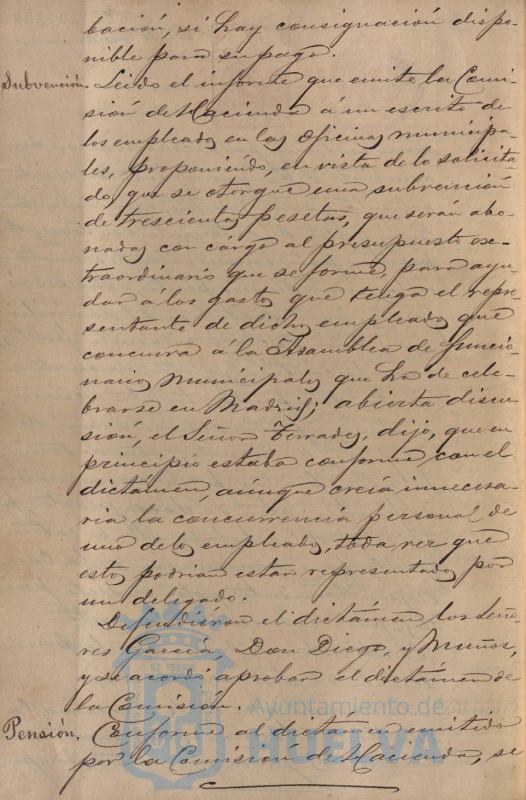 bación, si hay consignación dispo-
nible para su pago.
Subvención. Leido el informe que emite la Comi-
sión de Hacienda á un escrito de
los empleados en las oficinas municipa-
les, proponiendo, en vista de lo solicita-
do, que se otorgue una subvención
de trescientas pesetas, que serán abo-
nadas con cárgo al presupuesto ex-
traordinario que se forme, para ayu-
dar a los gastos que tenga el repre-
sentante de dichos empleados que
concurra á la Asamblea de funcio-
narios municipales que ha de cele-
brarse en Madrid; abierta discu-
sión, el Señor Terrades, dijo, que en
principio estaba conforme con el
dictámen, aúnque creía innecesa-
ria la concurrencia personal de
uno de los empleados, toda vez que
estos podrian estar representados por
un delegado.
Defendiéron el dictámen los Seño-
res García, Don Diego, y Muñoz,
y se acordó aprobar el dictámen de
la Comisión.
Pensión. Conforme al dictámen emitido
por la Comisión de Hacienda, se
Ayuntamiento de
HUELVA